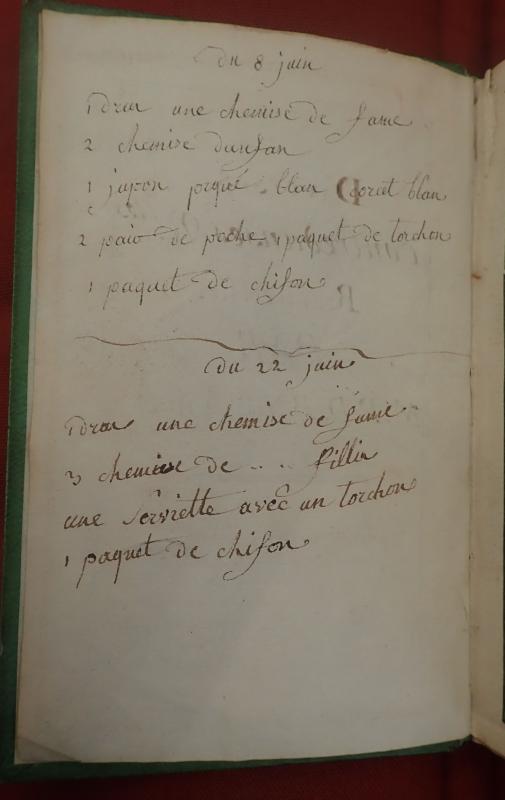 du 8 juin
1 drau une chemise de fame
2 chemise dunfan
1 jupon piqué blan 1 corcet blan
2 pair de poche 1 paquet de torchon
1 paquet de chifon
du 22 juin
1 drau une chemise de fame
3 chemise de .. .. fillin
une serviette avec un torchon
1 paquet de chifon